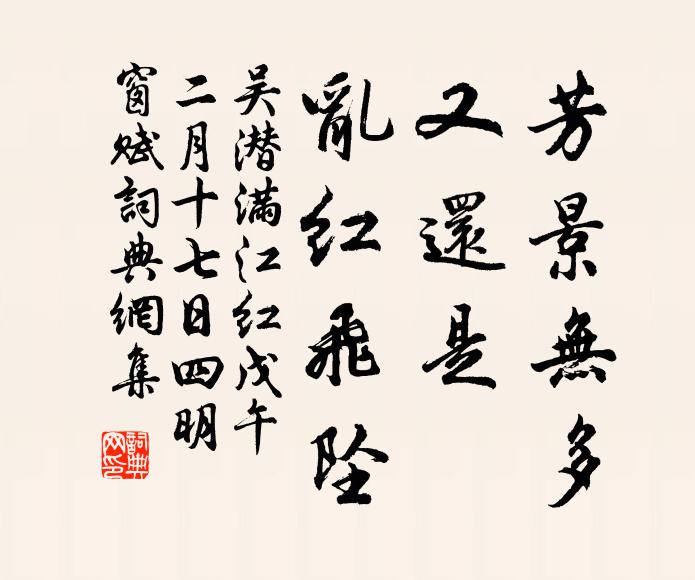 芳景無多
又還是
亂紅飛墜
吴潜滿江紅戊午
二月十七日四明
窗賦詞典網集
詞典网印